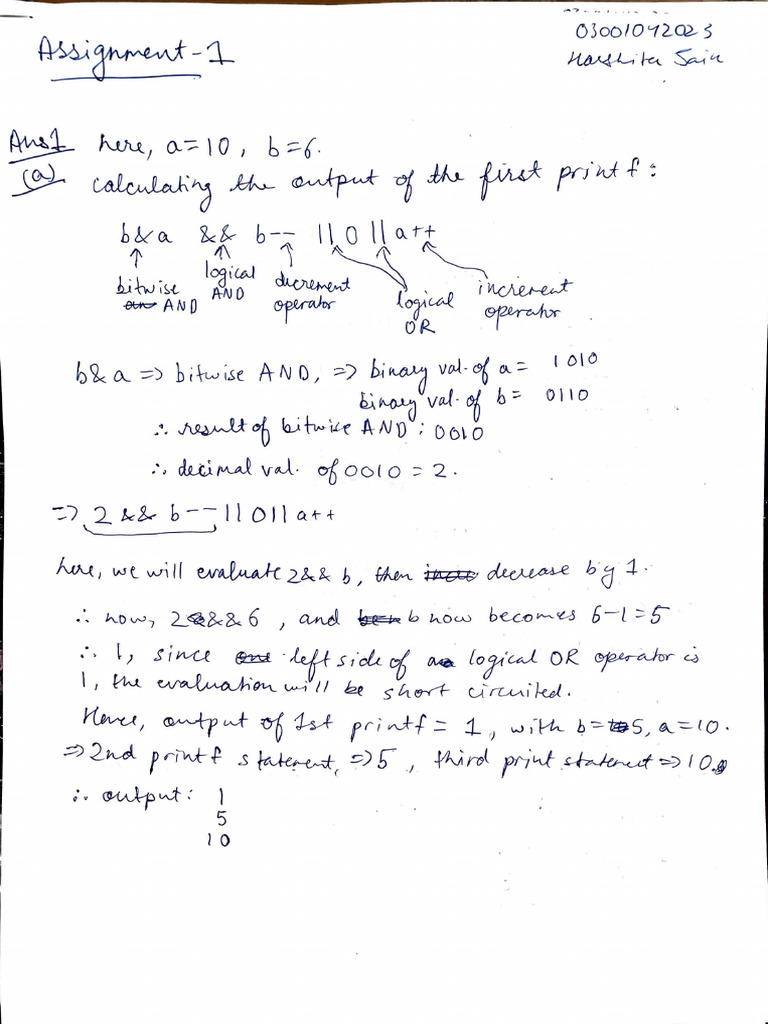 03001042023
Assignment-1
Harshita Jain
Ans1 here, a=10, b=6.
(a) calculating the output of the first printf:
b&a && b-- ||0||a++
bitwise AND logical AND decrement operator logical OR increment operator
b&a => bitwise AND, => binary val. of a = 1010
binary val. of b = 0110
∴ result of bitwise AND : 0010
∴ decimal val. of 0010 = 2.
=> 2 && b--||0||a++
here, we will evaluate 2&& b, then decrease by 1.
∴ now, 2&&6, and b now becomes 6-1=5
∴ 1, since left side of logical OR operator is
1, the evaluation will be short circuited.
Hence, output of 1st printf = 1, with b=5, a=10.
=> 2nd printf statement, => 5, third print statement => 10.
∴ output: 1
5
10